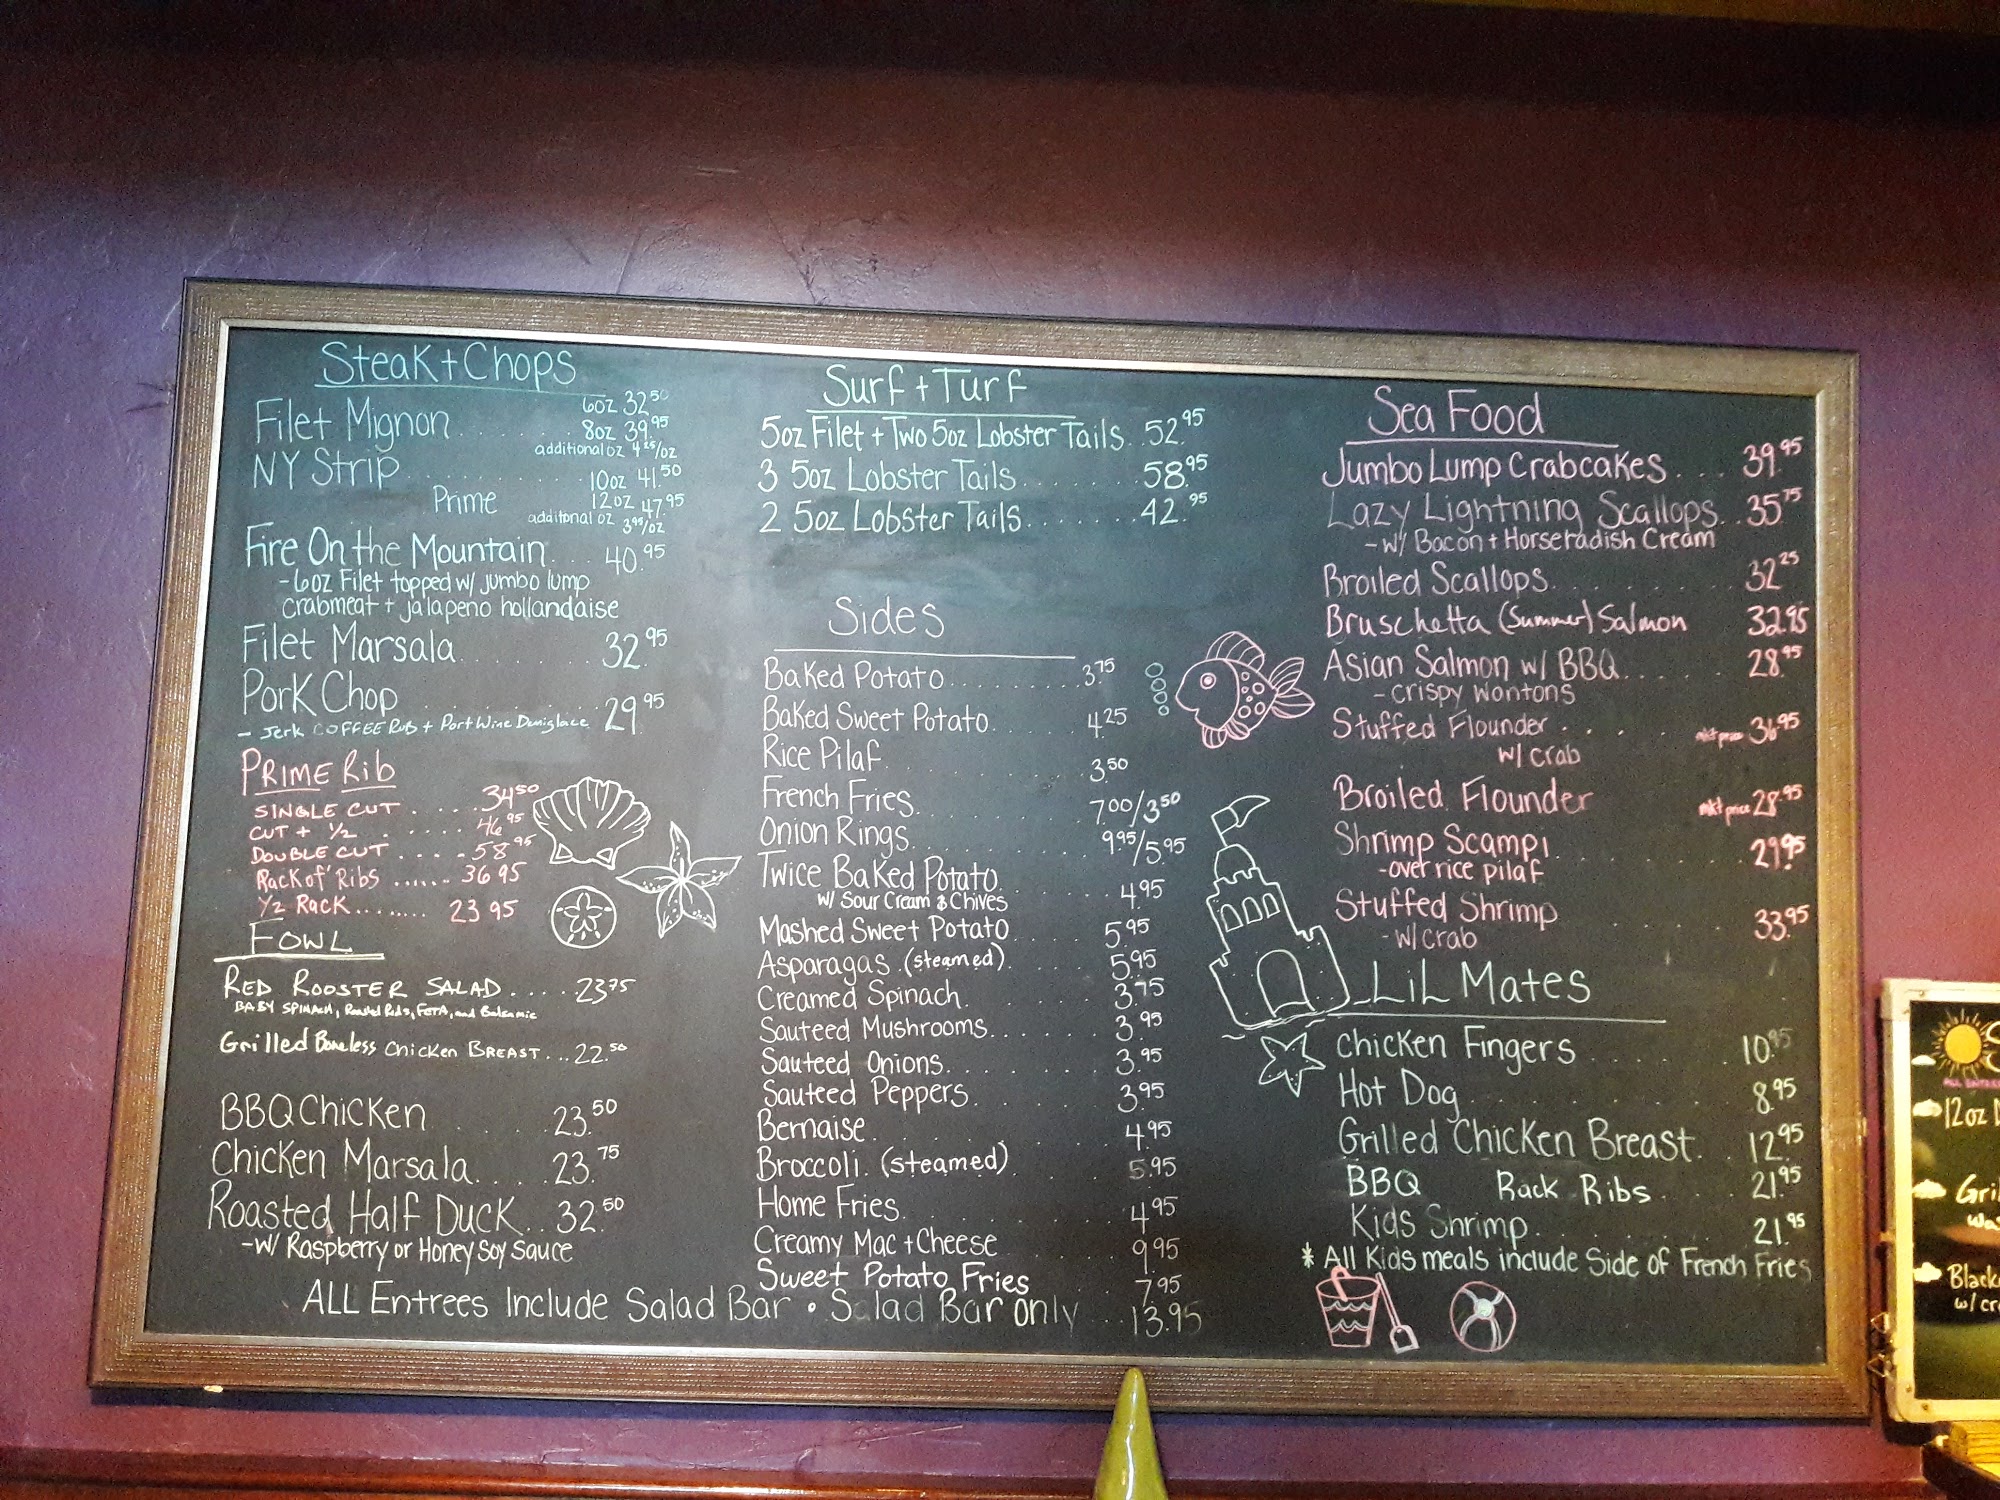 Steak + Chops
Filet Mignon ........ 6oz 32.50
8oz 39.95
additional oz 4.25/oz
NY Strip ........ 10oz 41.50
Prime 12oz 47.95
additional oz 3.95/oz
Fire On the Mountain... 40.95
-6oz Filet topped w/ jumbo lump
crabmeat + jalapeno hollandaise
Filet Marsala ........ 32.95
Pork Chop ........ 29.95
- Jerk COFFEE Rub + Port Wine Demiglace
PRIME Rib
SINGLE CUT ..... 34.50
CUT + 1/2 ...... 46.95
DOUBLE CUT ..... 58.95
Rack of Ribs ...... 36.95
1/2 Rack ....... 23.95
FOWL
RED ROOSTER SALAD .... 23.75
BABY SPINACH, Roasted Reds, FETA, and Balsamic
Grilled Boneless Chicken BREAST... 22.50
BBQ Chicken ..... 23.50
Chicken Marsala.... 23.75
Roasted Half Duck.. 32.50
-w/ Raspberry or Honey Soy Sauce
Surf + Turf
5oz Filet + Two 5oz Lobster Tails.. 52.95
3 5oz Lobster Tails........ 58.95
2 5oz Lobster Tails........ 42.95
Sides
Baked Potato.......... 3.75
Baked Sweet Potato...... 4.25
Rice Pilaf.......... 3.50
French Fries......... 7.00/3.50
Onion Rings......... 9.95/5.95
Twice Baked Potato...... 4.95
w/ Sour Cream & Chives
Mashed Sweet Potato.... 5.95
Asparagas.(steamed).... 5.95
Creamed Spinach....... 3.75
Sauteed Mushrooms...... 3.95
Sauteed Onions........ 3.95
Sauteed Peppers....... 3.95
Bernaise........... 4.95
Broccoli.(steamed)..... 5.95
Home Fries......... 4.95
Creamy Mac + Cheese 9.95
Sweet Potato Fries 7.95
ALL Entrees Include Salad Bar • Salad Bar only ... 13.95
Sea Food
Jumbo Lump Crabcakes.... 39.95
Lazy Lightning Scallops.. 35.75
-w/ Bacon + Horseradish Cream
Broiled Scallops........ 32.25
Bruschetta (Summer) Salmon 32.95
Asian Salmon w/ BBQ..... 28.95
-crispy wontons
Stuffed Flounder.... mkt price 36.95
w/ crab
Broiled Flounder mkt price 28.95
Shrimp Scampi....... 29.95
-over rice pilaf
Stuffed Shrimp....... 33.95
-w/ crab
LiL Mates
Chicken Fingers ...... 10.95
Hot Dog.......... 8.95
Grilled Chicken Breast.. 12.95
BBQ Rack Ribs.... 21.95
Kids Shrimp........ 21.95
* All Kids meals include Side of French Fries
12oz
Gri
w/ cr